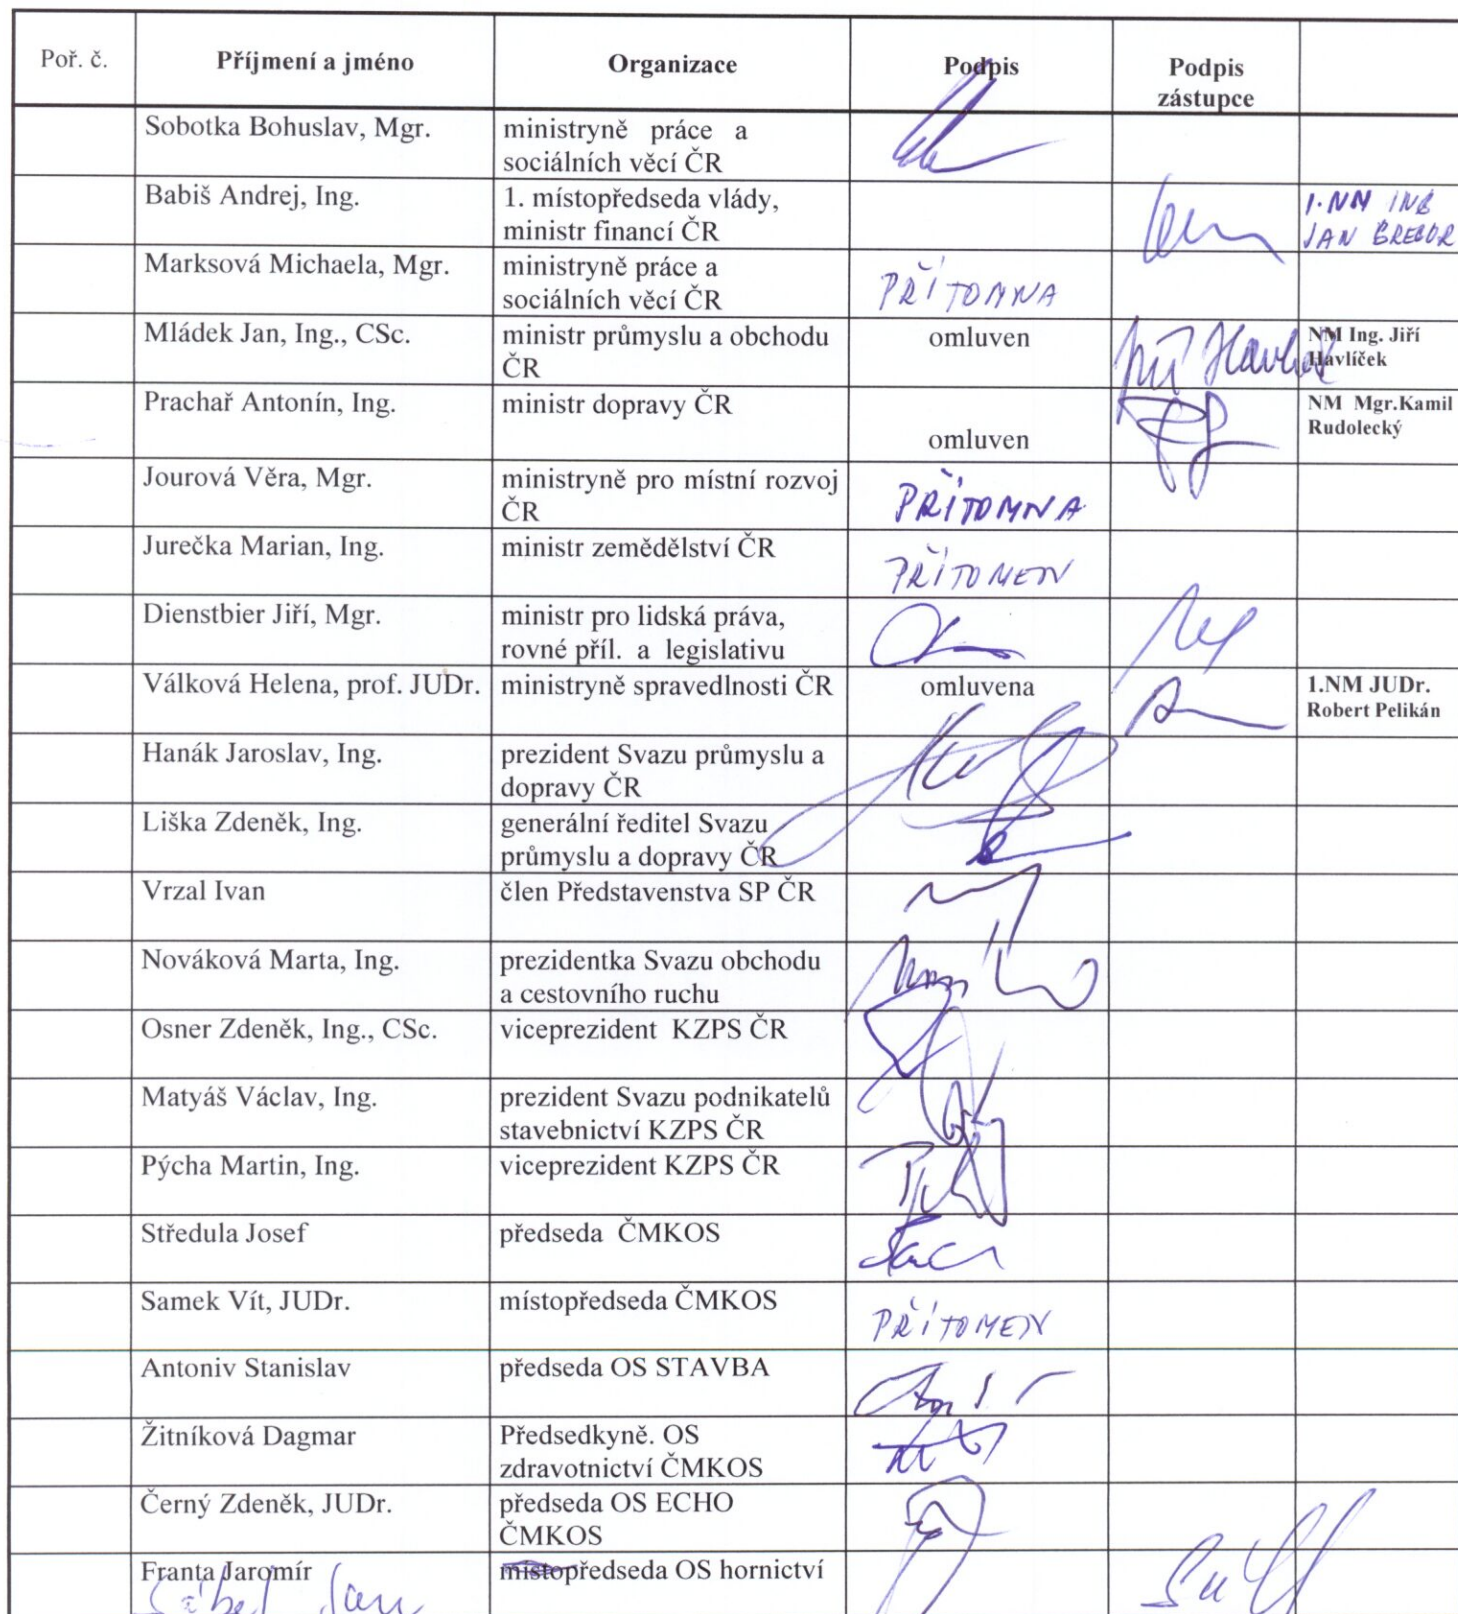 Poř. č. Příjmení a jméno Organizace Podpis Podpis
zástupce
Sobotka Bohuslav, Mgr. ministryně práce a
sociálních věcí ČR
Babiš Andrej, Ing. 1. místopředseda vlády, 1.NM ING
ministr financí ČR JAN GREGOR
Marksová Michaela, Mgr. ministryně práce a
sociálních věcí ČR PŘÍTOMNA
Mládek Jan, Ing., CSc. ministr průmyslu a obchodu omluven NM Ing. Jiří
ČR Havlíček
Prachař Antonín, Ing. ministr dopravy ČR NM Mgr.Kamil
omluven Rudolecký
Jourová Věra, Mgr. ministryně pro místní rozvoj
ČR PŘÍTOMNA
Jurečka Marian, Ing. ministr zemědělství ČR
PŘÍTOMEN
Dienstbier Jiří, Mgr. ministr pro lidská práva,
rovné příl. a legislativu
Válková Helena, prof. JUDr. ministryně spravedlnosti ČR omluvena 1.NM JUDr.
Robert Pelikán
Hanák Jaroslav, Ing. prezident Svazu průmyslu a
dopravy ČR
Liška Zdeněk, Ing. generální ředitel Svazu
průmyslu a dopravy ČR
Vrzal Ivan člen Představenstva SP ČR
Nováková Marta, Ing. prezidentka Svazu obchodu
a cestovního ruchu
Osner Zdeněk, Ing., CSc. viceprezident KZPS ČR
Matyáš Václav, Ing. prezident Svazu podnikatelů
stavebnictví KZPS ČR
Pýcha Martin, Ing. viceprezident KZPS ČR
Středula Josef předseda ČMKOS
Samek Vít, JUDr. místopředseda ČMKOS
PŘÍTOMEN
Antoniv Stanislav předseda OS STAVBA
Žitníková Dagmar Předsedkyně. OS
zdravotnictví ČMKOS
Černý Zdeněk, JUDr. předseda OS ECHO
ČMKOS
Franta Jaromír místopředseda OS hornictví